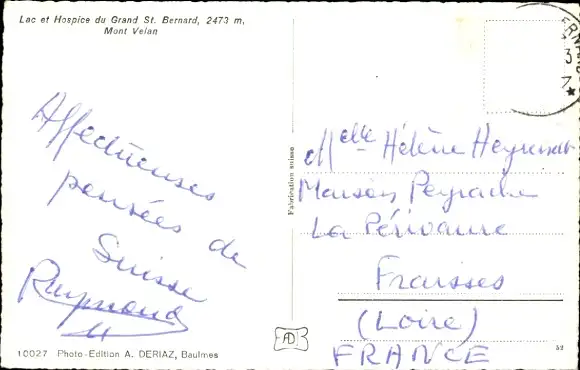 Lac et Hospice du Grand St. Bernard, 2473 m,
Mont Velan
Affectueuses
pensées de
Suisse
Raymond
10027 Photo-Edition A. DERIAZ, Baulmes
Fabrication suisse
AD
3
Melle Hélène
Maison
La
Fraisses
(Loire)
FRANCE